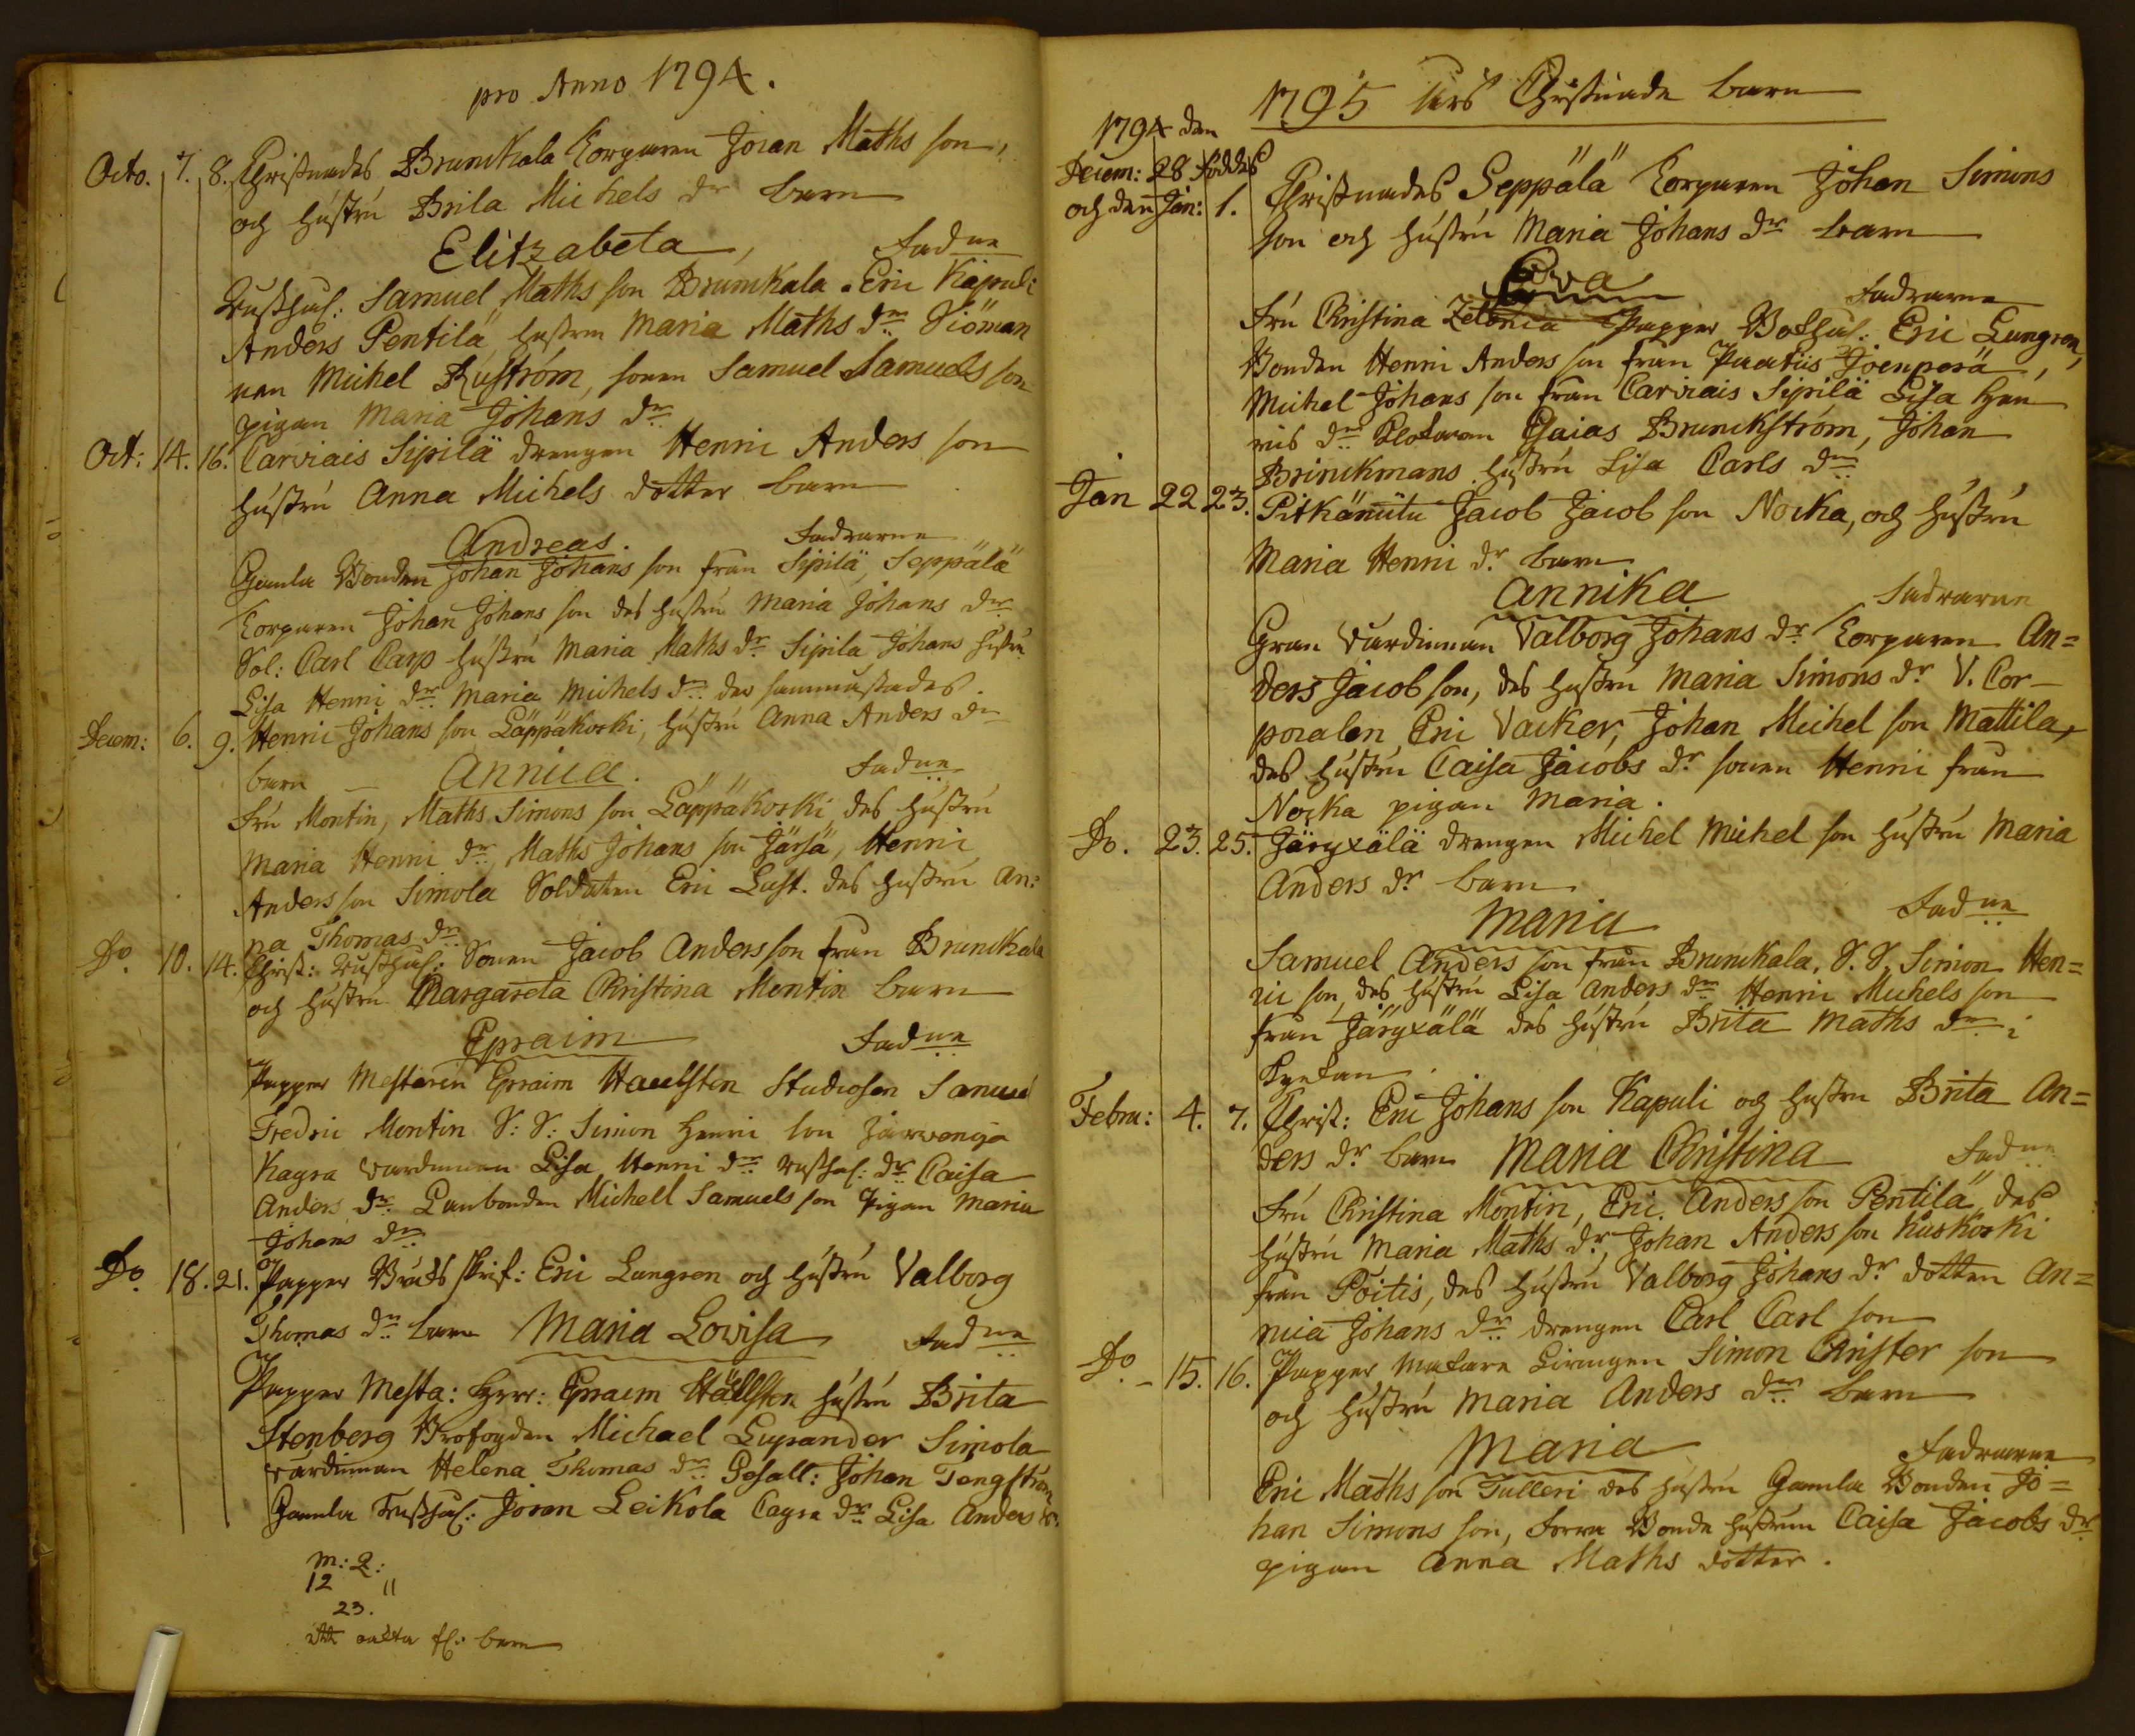 pro Anno 1794.
Octo. 7. 8. Christnades Brunckala Torparen Joran Maths son,
och hustru Brita Michels dr barn
Elitzabeta, Fadne
Rusthul: Samuel Maths son Brunckala. Eric Kapuli
Anders Pentilä, hustrun Maria Maths dr Siöman
nen Michel Ruström, sonen Samuel Samuels son
pigan Maria Johans dr
Oct: 14. 16. Carviais Sipilä drengen Henric Anders son
hustru Anna Michels dotter barn
Andreas. Fadrarne
Gamla Bonden Johan Johans son från Sipilä, Seppälä
Torparen Johan Johans son des hustru Maria Johans dr
Sol: Carl Carp hustru Maria Maths dr Sipila Johans hustru
Lisa Henric dr Maria Michels dr der sammastädes.
Decem: 6. 9. Henric Johans son Läppäkoski, hustru Anna Anders dr
barn – Annica. Fadne
Fru Montin, Maths Simons son Läppäkoski, des hustru
Maria Henric dr, Maths Johans son Järsä, Henric
Anders son Simola Soldaten Eric Lust. des hustru An:
na Thomas dr
Do. 10. 14. Christ: Rusthul: Sonen Jacob Anders son från Brunckala
och hustru Margareta Christina Montin barn
Epraim Fadne
Papper Mesteren Epraim Haelsten Studiosen Samuel
Fredric Montin S: S: Simon Henric son Järvenoja
Kagra vardinnan Lisa Henric dr Rusthol: dr Caisa
Anders dr Lanbonden Michell Samuels son Pigan Maria
Johans dr
Do 18. 21. Papper Bruks skrif: Eric Lungren och hustru Valborg
Thomas dr barn Maria Lovisa Fadne
Papper Mesta: Herr: Epraim Hällsten hustru Brita
Stenberg Brofogden Michael Lupander Simola
värdinnan Helena Thomas dr Gesäll: Johan Tengström
Gamla Rusthul: Joran Leikola Cagra dr Lisa Anders dr.
M: Q:
12 11
23.
ett oäkta fl: barn
1795 års Christnade barn
1794 den
Decem: 28 föddes
och den Jan: 1. Christnades Seppälä Torparen Johan Simons
son och hustru Maria Johans dr barn
Eva Fadrarne
Fru Christina Zelonia Papper Bokhul: Eric Lungren,
Bonden Henric Anders son från Paatiis Joenperä,
Michel Johans son från Carviais Sipilä Lisa Hen
rics dr Klockaren Esaias Brunckström, Johan
Brinckmans hustru Lisa Carls dr
Jan 22 23. Pitkämiitu Jacob Jacob son Nocka, och hustru
Maria Henric dr. barn
Annika Fadrarne
Gran Värdinnan Valborg Johans dr Torparen An=
ders Jacob son, des hustru Maria Simons dr V. Cor–
poralen Eric Vacker, Johan Michel son Mattila,
des hustru Caisa Jacobs dr sonen Henric från
Nocka pigan Maria.
Do. 23. 25. Järyxälä drengen Michel Michel son hustru Maria
Anders dr barn
Maria Fadne
Samuel Anders son från Brunckala, S. S. Simon Hen=
ric son, des hustru Lisa Anders dr Henric Michels son
från Järyxälä des hustru Brita Maths dr i
Kyrkan.
Febru: 4. 7. Christ: Eric Johans son Kapuli och hustru Brita An=
ders dr barn Maria Christina Fadne
Fru Christina Montin, Eric Anders son Pentilä des
hustru Maria Maths dr, Johan Anders son Kuskoski
från Pöitis, des hustru Valborg Johans dr dottren An=
nica Johans dr drengen Carl Carl son
Do – 15. 16. Papper Makare Läringen Simon Christer son
och hustru Maria Anders dr barn
Maria Fadrarne
Eric Maths son Tulleri des hustru Gamla Bonden Jo=
han Simons son, Torra Bonde hustrun Caisa Jacobs dr
pigan Anna Maths dotter.